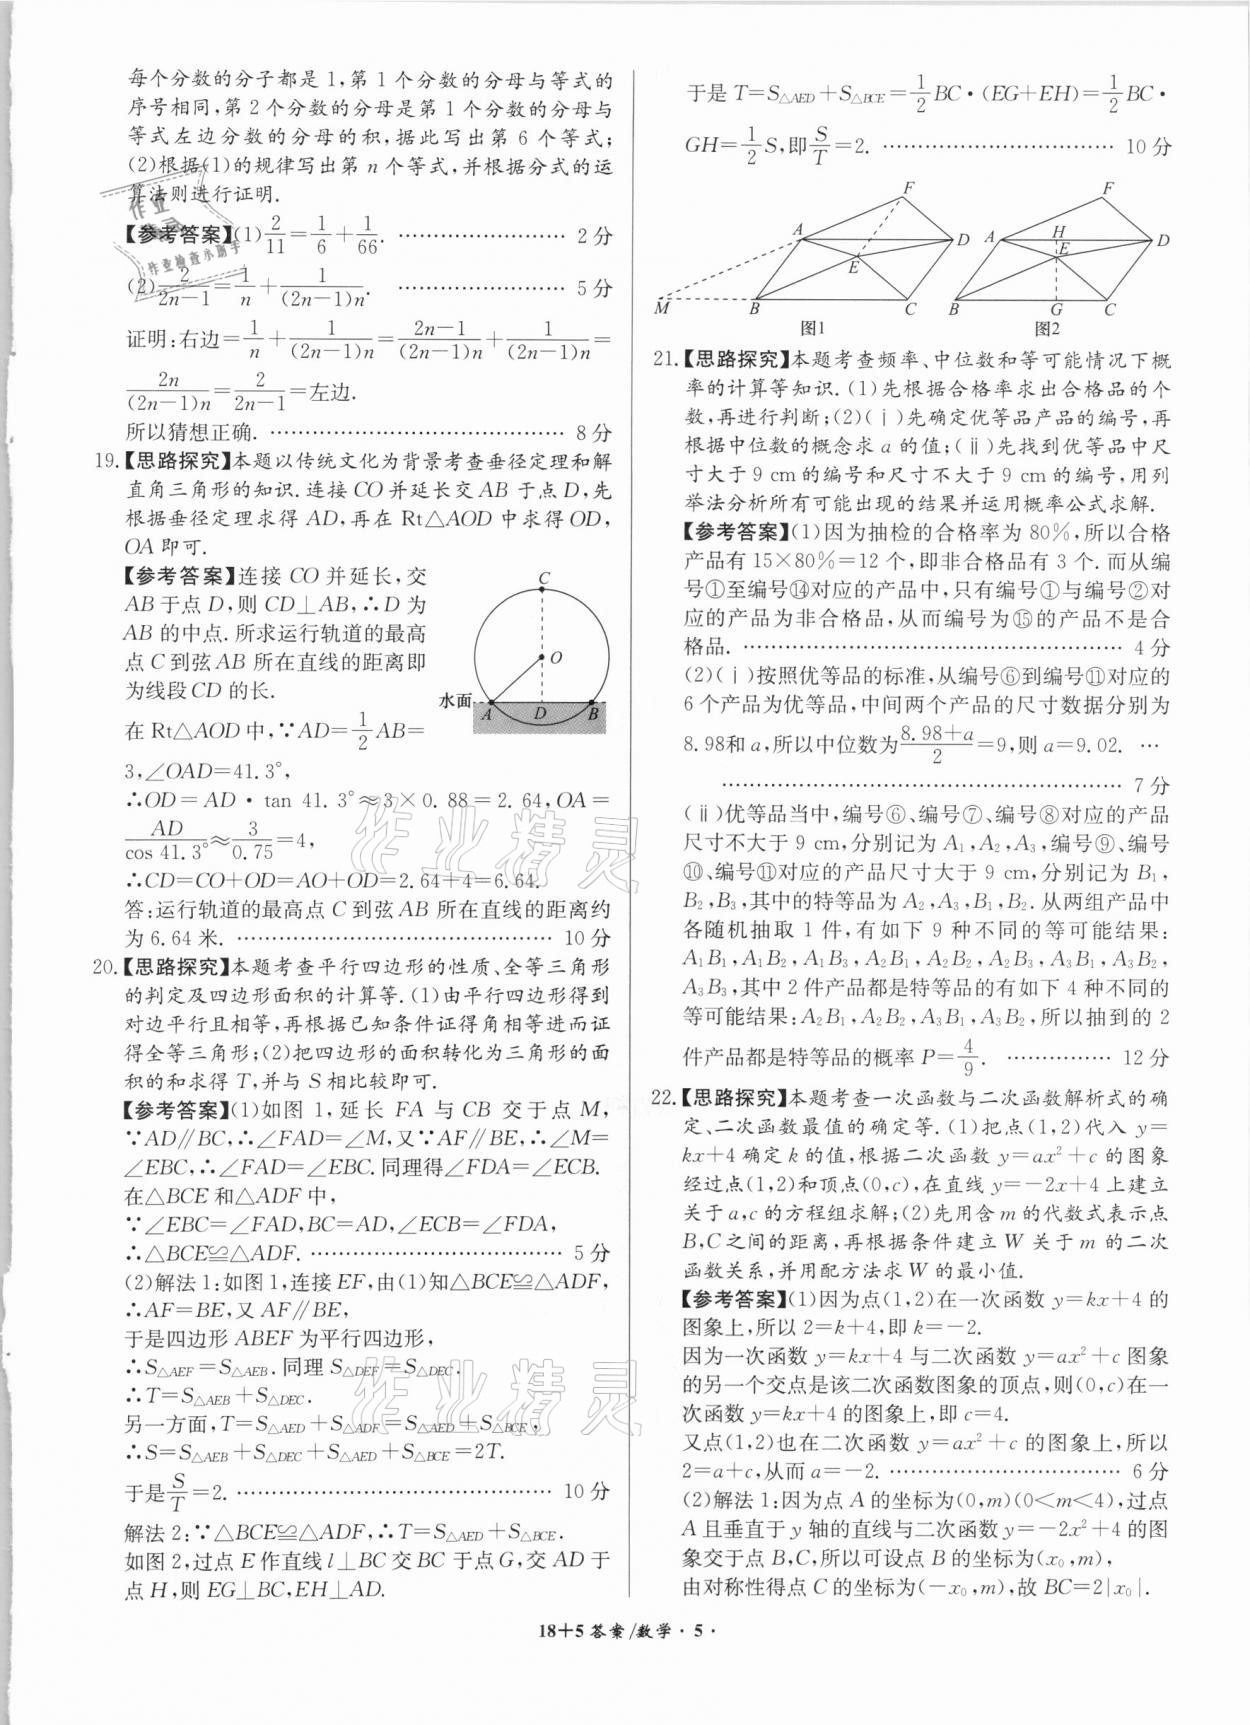 每个分数的分子都是 1,第 1 个分数的分母与等式的
序号相同,第 2 个分数的分母是第 1 个分数的分母与
等式左边分数的分母的积,据此写出第 6 个等式;
(2)根据(1)的规律写出第 n 个等式,并根据分式的运
算法则进行证明.
【参考答案】(1)2/11=1/6+1/66. …………………… 2 分
(2)2/(2n-1)=1/n+1/((2n-1)n). …………………… 5 分
证明:右边=1/n+1/((2n-1)n)=(2n-1)/((2n-1)n)+1/((2n-1)n)=
2n/((2n-1)n)=2/(2n-1)=左边.
所以猜想正确. …………………………………… 8 分
19.【思路探究】本题以传统文化为背景考查垂径定理和解
直角三角形的知识.连接 CO 并延长交 AB 于点 D,先
根据垂径定理求得 AD,再在 Rt△AOD 中求得 OD,
OA 即可.
【参考答案】连接 CO 并延长,交
AB 于点 D,则 CD⊥AB,∴D 为
AB 的中点.所求运行轨道的最高
点 C 到弦 AB 所在直线的距离即
为线段 CD 的长.
在 Rt△AOD 中,∵AD=1/2 AB=
3,∠OAD=41.3°,
∴OD=AD·tan 41.3°≈3×0.88=2.64,OA=
AD/cos 41.3°≈3/0.75=4,
∴CD=CO+OD=AO+OD=2.64+4=6.64.
答:运行轨道的最高点 C 到弦 AB 所在直线的距离约
为 6.64 米. ……………………………………… 10 分
C
O
水面
A
D
B
20.【思路探究】本题考查平行四边形的性质、全等三角形
的判定及四边形面积的计算等.(1)由平行四边形得到
对边平行且相等,再根据已知条件证得角相等进而证
得全等三角形;(2)把四边形的面积转化为三角形的面
积的和求得 T,并与 S 相比较即可.
【参考答案】(1)如图 1,延长 FA 与 CB 交于点 M,
∵AD∥BC,∴∠FAD=∠M,又∵AF∥BE,∴∠M=
∠EBC,∴∠FAD=∠EBC.同理得∠FDA=∠ECB.
在△BCE 和△ADF 中,
∵∠EBC=∠FAD,BC=AD,∠ECB=∠FDA,
∴△BCE≌△ADF. ……………………………… 5 分
(2)解法 1:如图 1,连接 EF,由(1)知△BCE≌△ADF,
∴AF=BE,又 AF∥BE,
于是四边形 ABEF 为平行四边形,
∴S△AEF=S△AEB.同理 S△DEF=S△DEC.
∴T=S△AEB+S△DEC.
另一方面,T=S△AED+S△ADF=S△AED+S△BCE,
∴S=S△AEB+S△DEC+S△AED+S△BCE=2T.
于是S/T=2. ……………………………………… 10 分
解法 2:∵△BCE≌△ADF,∴T=S△AED+S△BCE.
如图 2,过点 E 作直线 l⊥BC 交 BC 于点 G,交 AD 于
点 H,则 EG⊥BC,EH⊥AD.
于是 T=S△AED+S△BCE=1/2 BC·(EG+EH)=1/2 BC·
GH=1/2 S,即S/T=2. …………………………… 10 分
F
A
D
E
M
B
C
图1
F
A
H
D
E
B
G
C
图2
21.【思路探究】本题考查频率、中位数和等可能情况下概
率的计算等知识.(1)先根据合格率求出合格品的个
数,再进行判断;(2)(ⅰ)先确定优等品产品的编号,再
根据中位数的概念求 a 的值;(ⅱ)先找到优等品中尺
寸大于 9 cm 的编号和尺寸不大于 9 cm 的编号,用列
举法分析所有可能出现的结果并运用概率公式求解.
【参考答案】(1)因为抽检的合格率为 80%,所以合格
产品有 15×80%=12 个,即非合格品有 3 个.而从编
号①至编号⑭对应的产品中,只有编号①与编号②对
应的产品为非合格品,从而编号为⑮的产品不是合
格品. ……………………………………………… 4 分
(2)(ⅰ)按照优等品的标准,从编号⑥到编号⑪对应的
6 个产品为优等品,中间两个产品的尺寸数据分别为
8.98和 a,所以中位数为(8.98+a)/2=9,则 a=9.02. …
…………………………………………………… 7 分
(ⅱ)优等品当中,编号⑥、编号⑦、编号⑧对应的产品
尺寸不大于 9 cm,分别记为 A₁,A₂,A₃,编号⑨、编号
⑩、编号⑪对应的产品尺寸大于 9 cm,分别记为 B₁,
B₂,B₃,其中的特等品为 A₂,A₃,B₁,B₂.从两组产品中
各随机抽取 1 件,有如下 9 种不同的等可能结果:
A₁B₁,A₁B₂,A₁B₃,A₂B₁,A₂B₂,A₂B₃,A₃B₁,A₃B₂,
A₃B₃,其中 2 件产品都是特等品的有如下 4 种不同的
等可能结果:A₂B₁,A₂B₂,A₃B₁,A₃B₂,所以抽到的 2
件产品都是特等品的概率 P=4/9. …………… 12 分
22.【思路探究】本题考查一次函数与二次函数解析式的确
定、二次函数最值的确定等.(1)把点(1,2)代入 y=
kx+4 确定 k 的值,根据二次函数 y=ax²+c 的图象
经过点(1,2)和顶点(0,c),在直线 y=-2x+4 上建立
关于 a,c 的方程组求解;(2)先用含 m 的代数式表示点
B,C 之间的距离,再根据条件建立 W 关于 m 的二次
函数关系,并用配方法求 W 的最小值.
【参考答案】(1)因为点(1,2)在一次函数 y=kx+4 的
图象上,所以 2=k+4,即 k=-2.
因为一次函数 y=kx+4 与二次函数 y=ax²+c 图象
的另一个交点是该二次函数图象的顶点,则(0,c)在一
次函数 y=kx+4 的图象上,即 c=4.
又点(1,2)也在二次函数 y=ax²+c 的图象上,所以
2=a+c,从而 a=-2. …………………………… 6 分
(2)解法 1:因为点 A 的坐标为(0,m)(0<m<4),过点
A 且垂直于 y 轴的直线与二次函数 y=-2x²+4 的图
象交于点 B,C,所以可设点 B 的坐标为(x₀,m),
由对称性得点 C 的坐标为(-x₀,m),故 BC=2|x₀|.
18+5答案/数学·5·
作业精灵
作业精灵
作业检查小助手